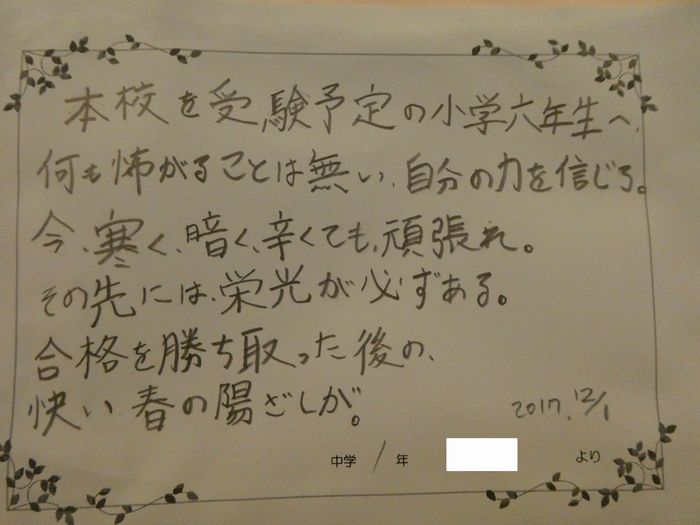 本校を受験予定の小学六年生へ、
何も怖がることは無い、自分の力を信じろ。
今、寒く、暗く、辛くても、頑張れ。
その先には、栄光が必ずある。
合格を勝ち取った後の、
快い春の陽ざしが。
2017.12/1
中学 1 年 より